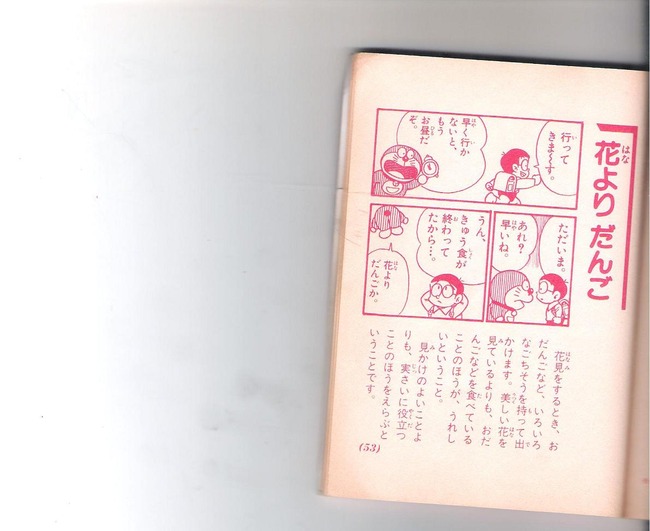 花より だんご
はな
行って
きま〜す。
早く行か
ないと、
もう
お昼だ
ぞ。
ただいま。
あれ?
早いね。
うん、
きゅう食が
終わって
たから…。
花より
だんごか。
花見をするとき、お
だんごなど、いろいろ
なごちそうを持って出
かけます。美しい花を
見ているよりも、おだ
んごなどを食べている
ことのほうが、うれし
いということ。
見かけのよいことよ
りも、実さいに役立つ
ことのほうをえらぶと
いうことです。
(53)